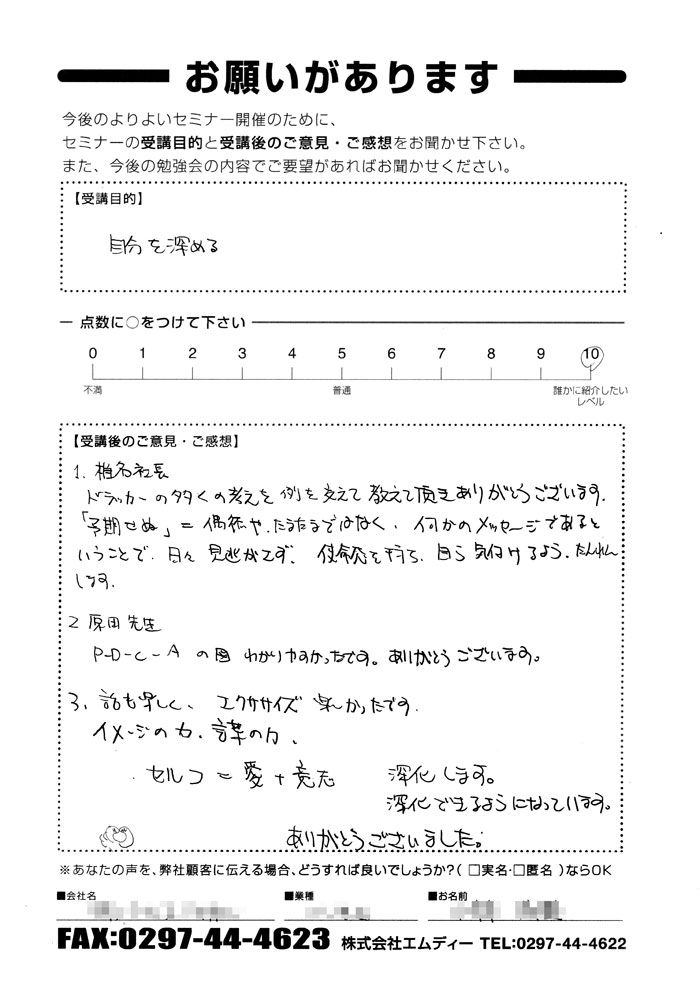 お願いがあります
今後のよりよいセミナー開催のために、
セミナーの受講目的と受講後のご意見・ご感想をお聞かせ下さい。
また、今後の勉強会の内容でご要望があればお聞かせください。
【受講目的】
自分を深める
点数に○をつけて下さい
0 1 2 3 4 5 6 7 8 9 10
不満 普通 誰かに紹介したい
レベル
【受講後のご意見・ご感想】
1. 椎名社長
ドラッカーの多くの考えを例を交えて教えて頂きありがとうございます.
「予期せぬ」=偶然や、たまたまではなく、何かのメッセージであると
いうことで、日々見逃がさず、使命感を持ち、自ら気付けるよう、たんれん
します.
2 原田先生
P-D-C-Aの図 わかりやすかったです。ありがとうございます。
3、話も楽しく、エクササイズ楽しかったです.
イメージの力、言葉の力、
セルフ=愛+意志 深化します。
深化できるようになっています。
ありがとうございました。
※あなたの声を、弊社顧客に伝える場合、どうすれば良いでしょうか?(□実名・□匿名)ならOK
■会社名 ■業種 ■お名前
FAX:0297-44-4623 株式会社エムディー TEL:0297-44-4622